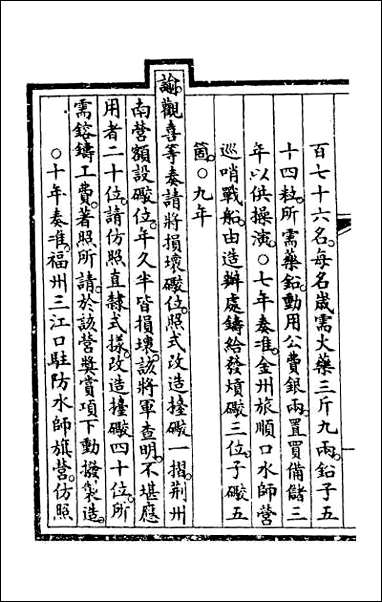 百七十六名。每名歲需火藥三斤九兩。鉛子五
十四粒。所需藥鉛。動用公費銀兩。置買備儲三
年以供操演。○七年奏准。金州旅順口水師營
巡哨戰船。由造辦處鑄給發熕礮三位。子礮五
箇。○九年
諭觀喜等奏請將損壞礮位。照式改造擡礮一摺。荆州
南營額設礮位。年久半皆損壞。該將軍查明。不堪應
用者二十位。請仿照直隸式樣。改造擡礮四十位。所
需鎔鑄工費。著照所請。於該營獎賞項下動撥製造。
○十年奏准。福州三江口駐防水師旗營。仿照